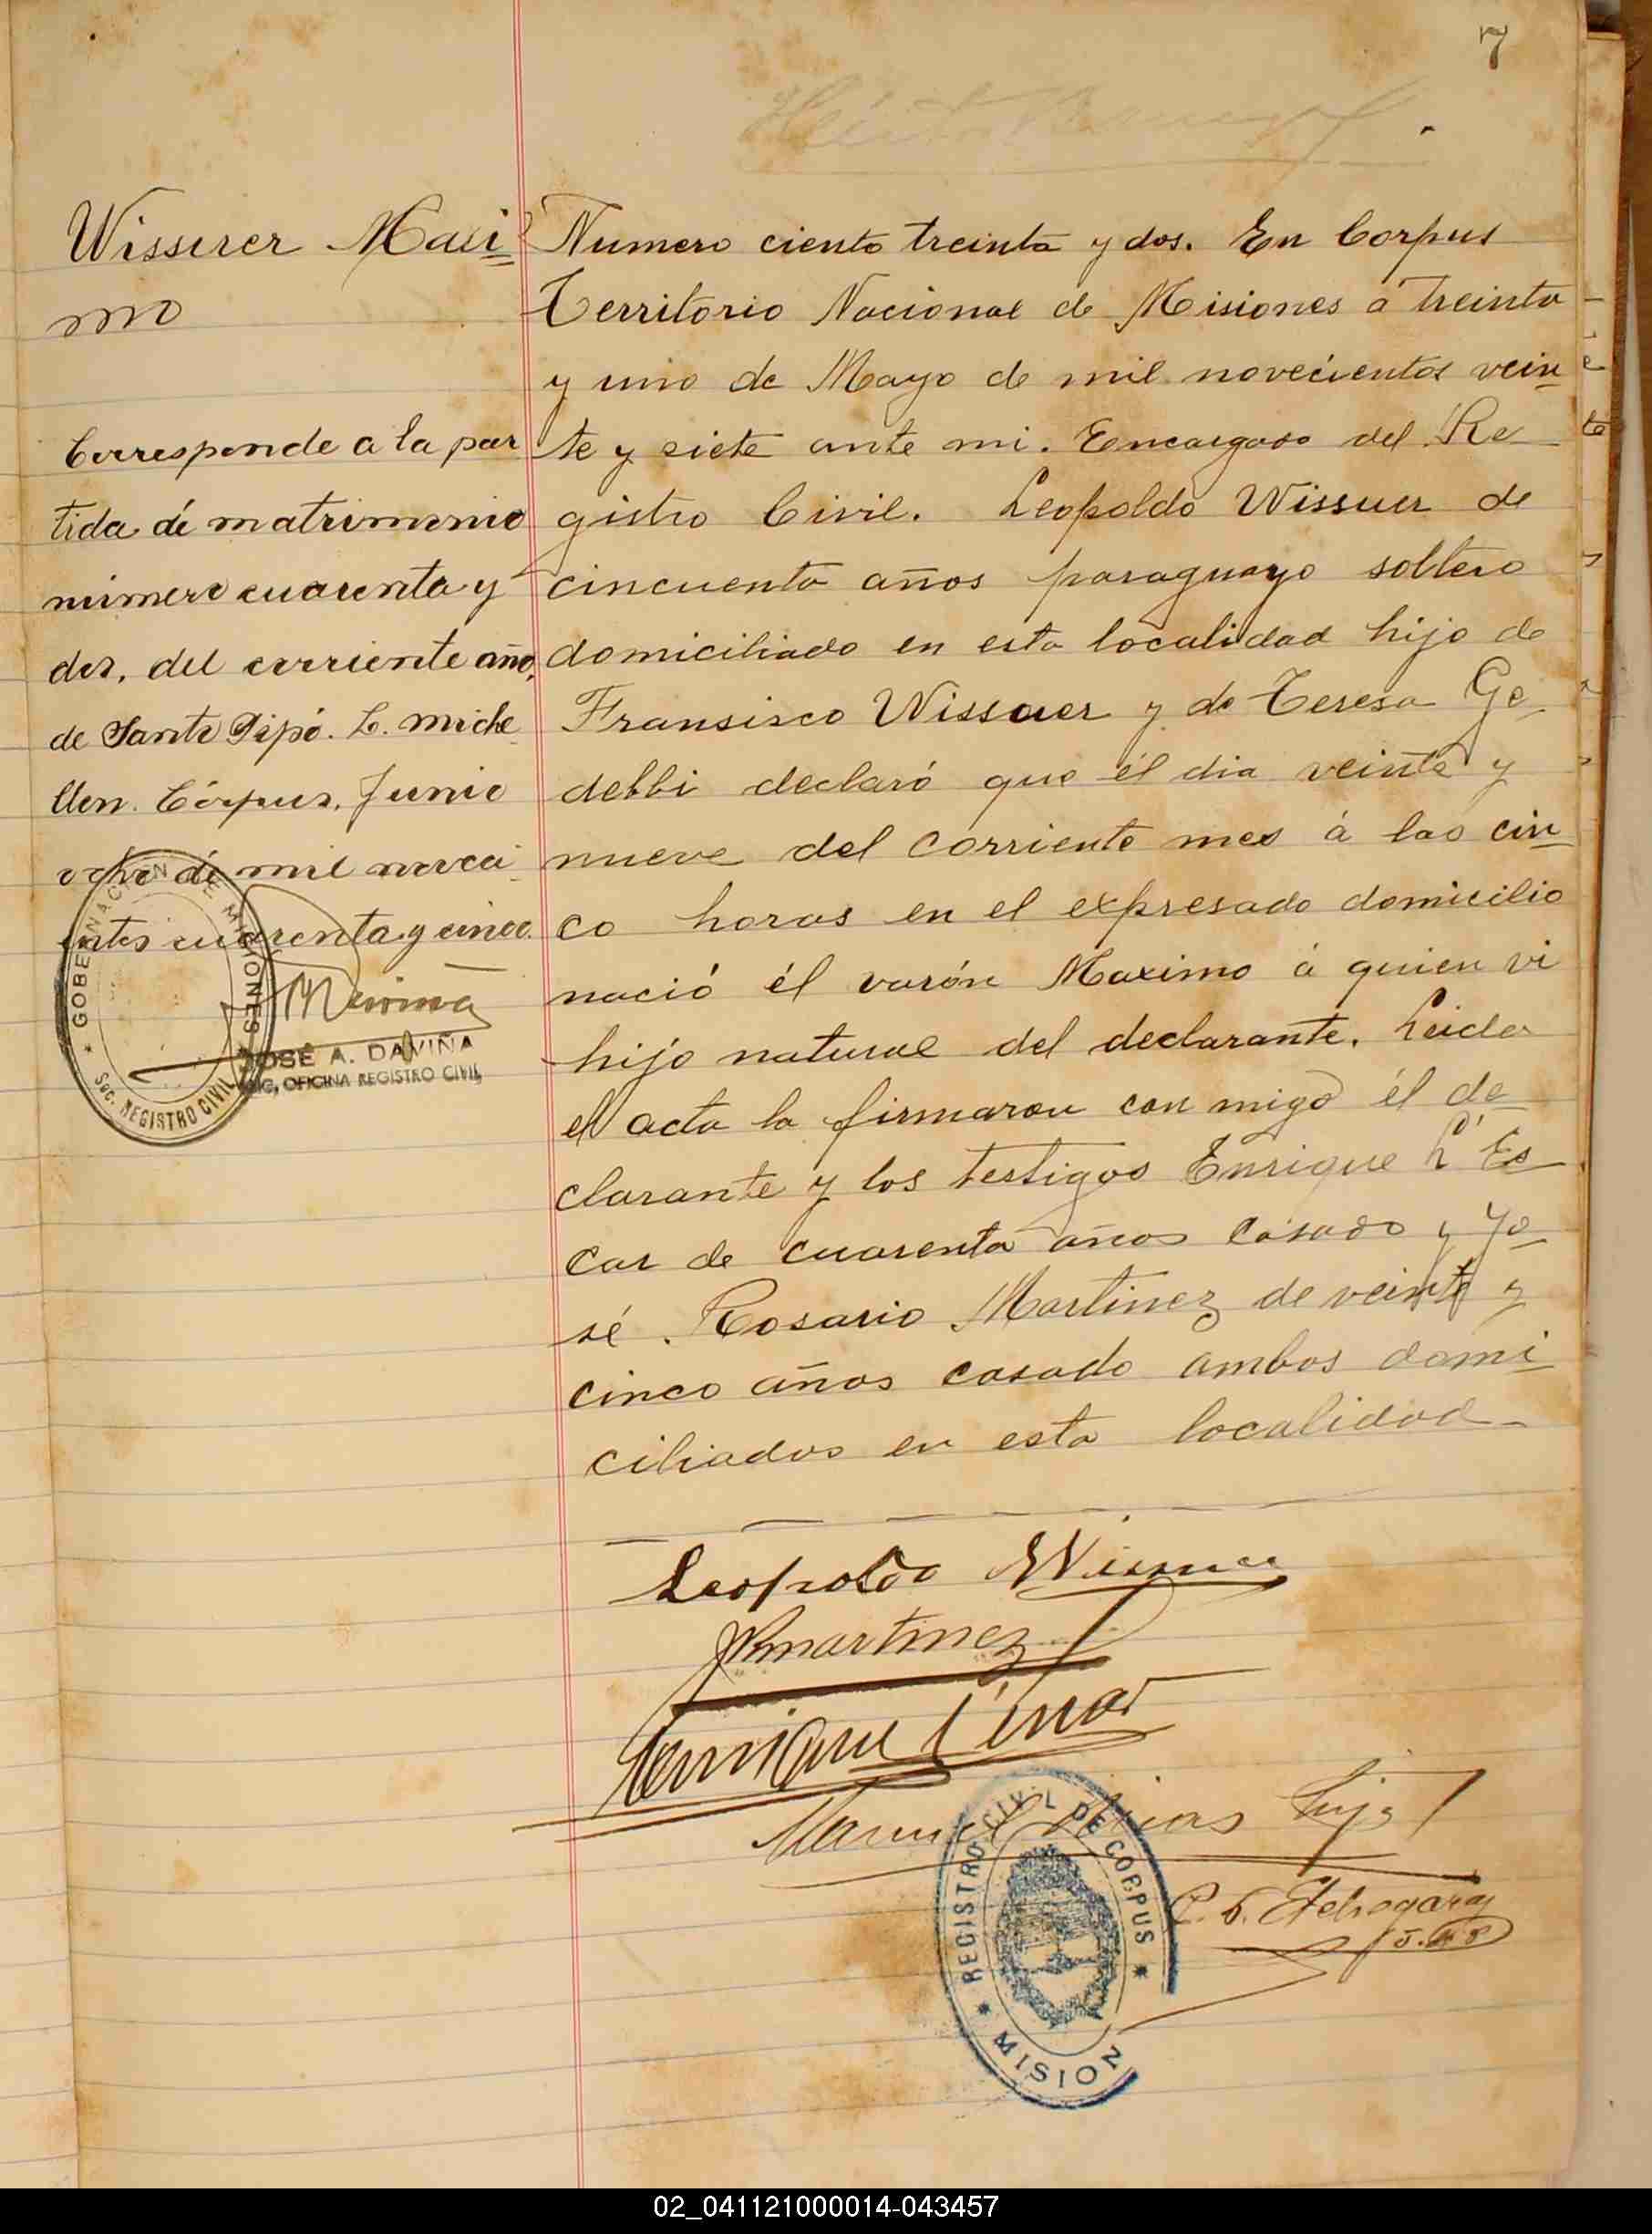 7
Wisserer Maxi
mo
Corresponde a la par
tida de matrimonio
número cuarenta y
dos, del corriente año,
de Santo Pipó. L. Miche
llon. Córpus, Junio
ocho de mil novecí
entos cuarenta y cinco.
GOBERNACIÓN DE MISIONES
Sec. REGISTRO CIVIL
JOSÉ A. DAVIÑA
OFICINA REGISTRO CIVIL
Numero ciento treinta y dos. En Corpus
Territorio Nacional de Misiones a treinta
y uno de Mayo de mil novecientos vein
te y siete ante mi. Encargado del Re
gistro Civil. Leopoldo Wissuer de
cincuenta años paraguayo soltero
domiciliado en esta localidad hijo de
Fransisco Wissuer y de Teresa Ge
debbi declaró que él dia veinte y
nueve del corriente mes á las cin
co horas en el expresado domicilio
nació él varón Maximo á quien vi
hijo natural del declarante. Leida
el acta la firmaron con migo él de
clarante y los testigos Enrique L'Es
car de cuarenta años casado y Jo
sé Rosario Martinez de veinte y
cinco años casado ambos domi
ciliados en esta localidad
Leopoldo Wissuer
JRmartinez
Enrique L'Escar
Manuel Arias hijo
REGISTRO CIVIL DE CORPUS
MISION
P. S. Etchegaray
J. 48
02_041121000014-043457